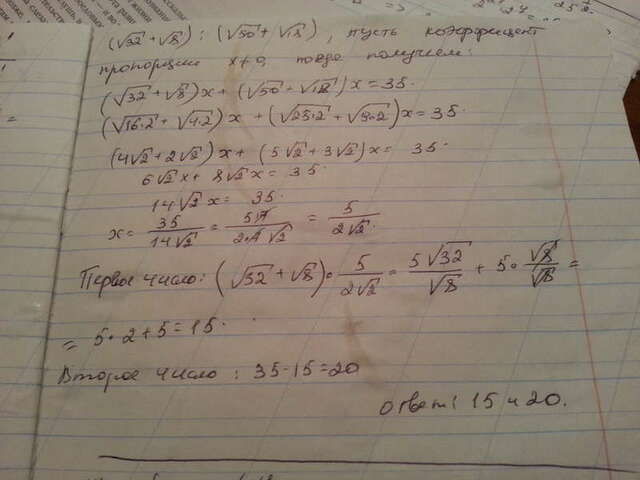 (√32 + √8) : (√50 + √18), пусть коэффициент
пропорции x≠0, тогда получаем:
(√32 + √8)x + (√50 + √18)x = 35.
(√16·2 + √4·2)x + (√25·2 + √9·2)x = 35.
(4√2 + 2√2)x + (5√2 + 3√2)x = 35.
6√2x + 8√2x = 35.
14√2x = 35.
x = 35/14√2 = 5·7/2·7√2 = 5/2√2.
Первое число: (√32 + √8)·5/2√2 = 5√32/√8 + 5·√8/√8 =
= 5·2+5=15.
Второе число: 35-15=20
Ответ: 15 и 20.